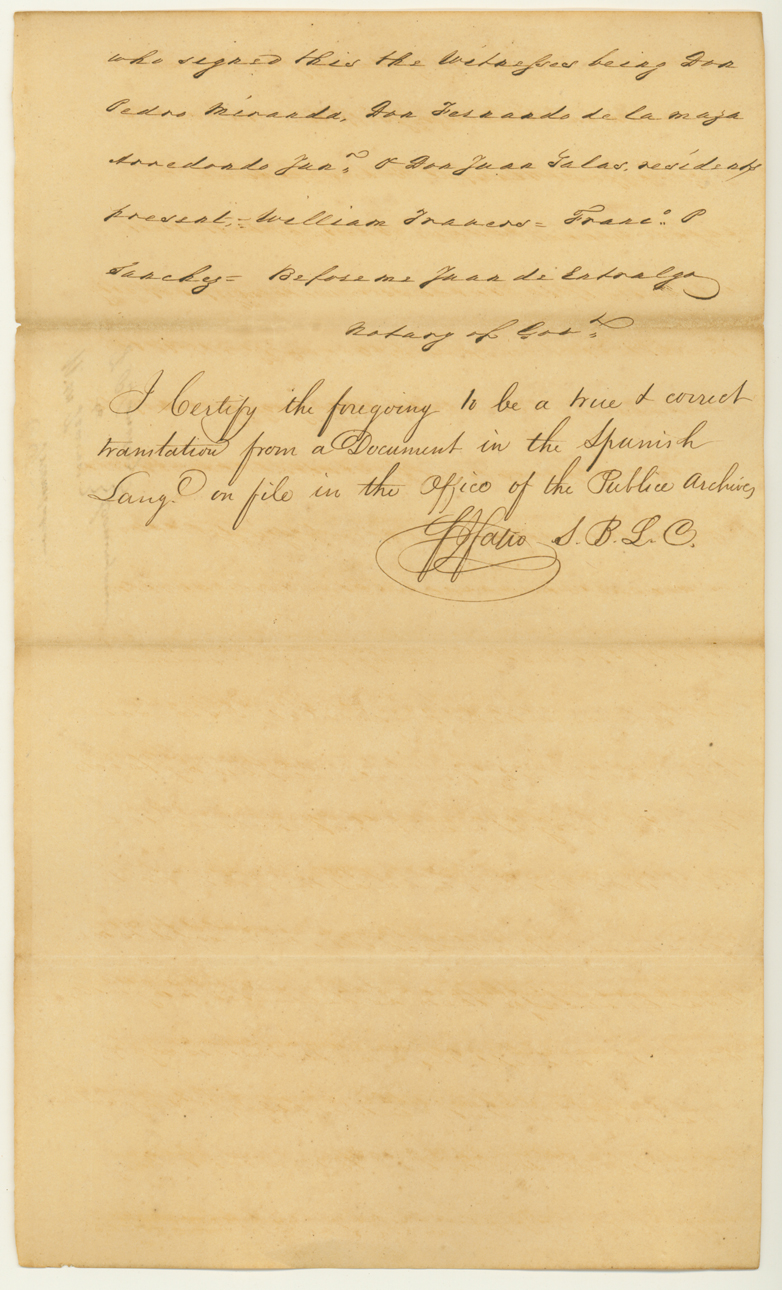 who signed this the Witnesses being Don
Pedro Miranda, Don Fernando de la maza
Arredondo Junr. & Don Juan Salas, residents
present,= William Travers= Franco. P
Sanchez= Before me Juan de Entralgo
Notary of Govt.
I Certify the foregoing to be a true & correct
translation from a Document in the Spanish
Lang.e on file in the Office of the Publice Archives
S. B. L. C.